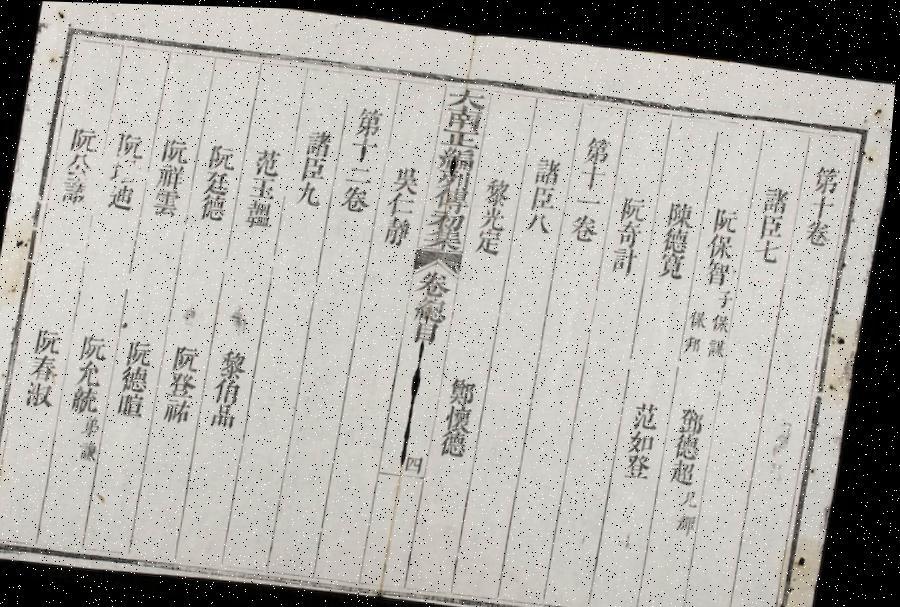 第十卷
諸臣七
阮保智 子 保譔 保
陳德寬 鄧德超 兄輝
阮奇計 范如登
第十一卷
諸臣八
黎光定 鄭懷德
大南正編列傳初集 卷總目 四
吳仁靜
第十二卷
諸臣九
范玉韞
阮廷德 黎伯品
阮祥雲 阮登祐
阮 迪 阮德暄
阮公 阮允統 弟謙
阮春淑